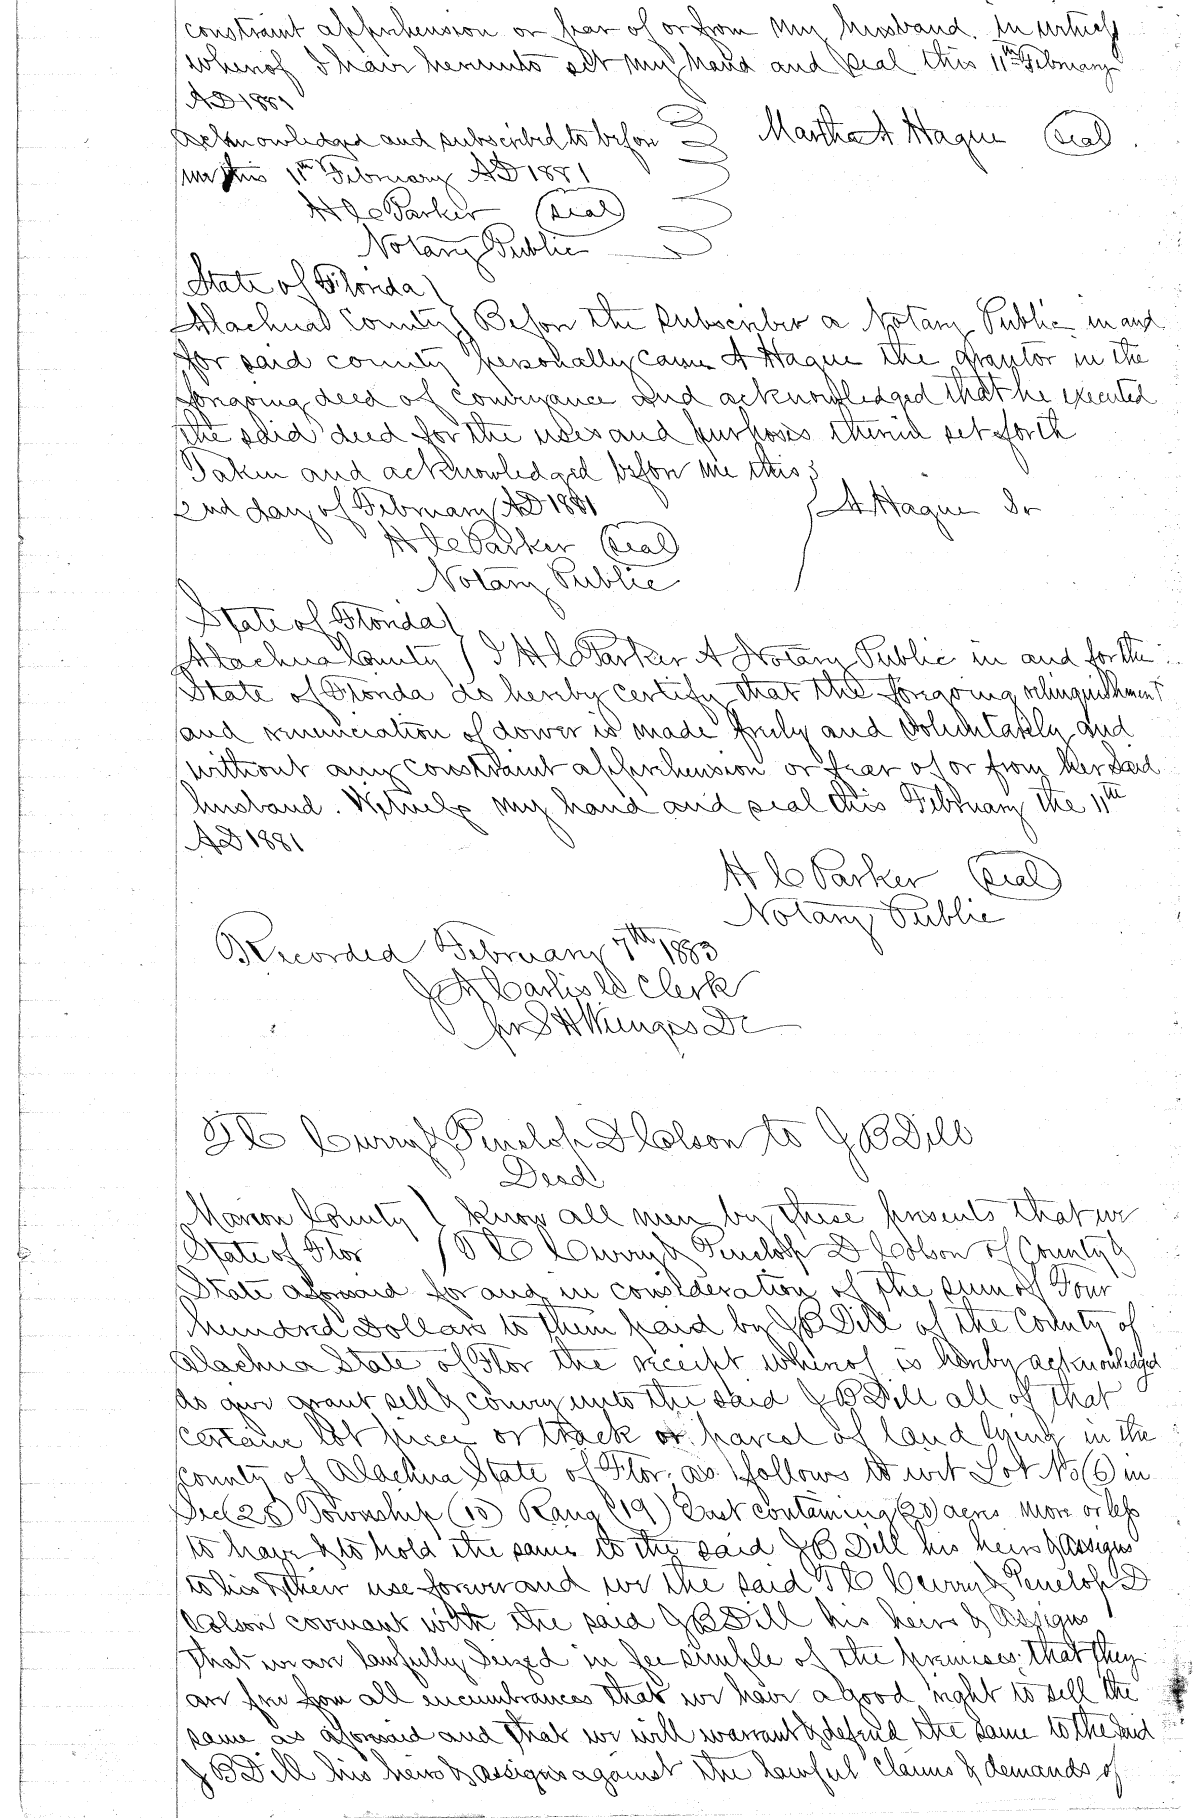 constraint apprehension or fear of or from my husband. In witness
whereof I have hereunto set my hand and seal this 11th February
AD 1881
Acknowledged and subscribed to before
me this 11th February AD 1881
Martha A Hague (seal)
H C Parker (seal)
Notary Public
State of Florida
Alachua County Before the subscriber a Notary Public in and
for said county personally came A Hague the grantor in the
foregoing deed of conveyance and acknowledged that he executed
the said deed for the uses and purposes therein set forth
Taken and acknowledged before me this
2nd day of February AD 1881
A Hague Sr
H C Parker (seal)
Notary Public
State of Florida
Alachua County I H C Parker A Notary Public in and for the
State of Florida do hereby certify that the foregoing relinquishment
and renunciation of dower is made freely and voluntarily and
without any constraint apprehension or fear of or from her said
husband. Witness my hand and seal this February the 11th
AD 1881
H C Parker (seal)
Notary Public
Recorded February 7th 1883
J A Carlisle Clerk
per S H Wienges DC
T C Curry & Penelop D Colson to J B Dill
Deed
Marion County Know all men by these presents that we
State of Flor T C Curry & Penelop D Colson of County &
State aforesaid for and in consideration of the sum of Four
hundred Dollars to them paid by J B Dill of the County of
Alachua State of Flor the receipt whereof is hereby acknowledged
do give grant sell & convey unto the said J B Dill all of that
certain lot piece or track or parcel of land lying in the
County of Alachua State of Flor. as follows to wit Lot No (6) in
Sec (28) Township (10) Rang (19) East containing (20) acres more or less
to have & to hold the same to the said J B Dill his heirs & assigns
to his & their use forever and we the said T C Curry & Penelop D
Colson covenant with the said J B Dill his heirs & assigns
that we are lawfully Seized in fee simple of the premises that they
are free from all encumbrances that we have a good right to sell the
same as aforesaid and that we will warrant & defend the same to the said
J B Dill his heirs & assigns against the lawful claims & demands of